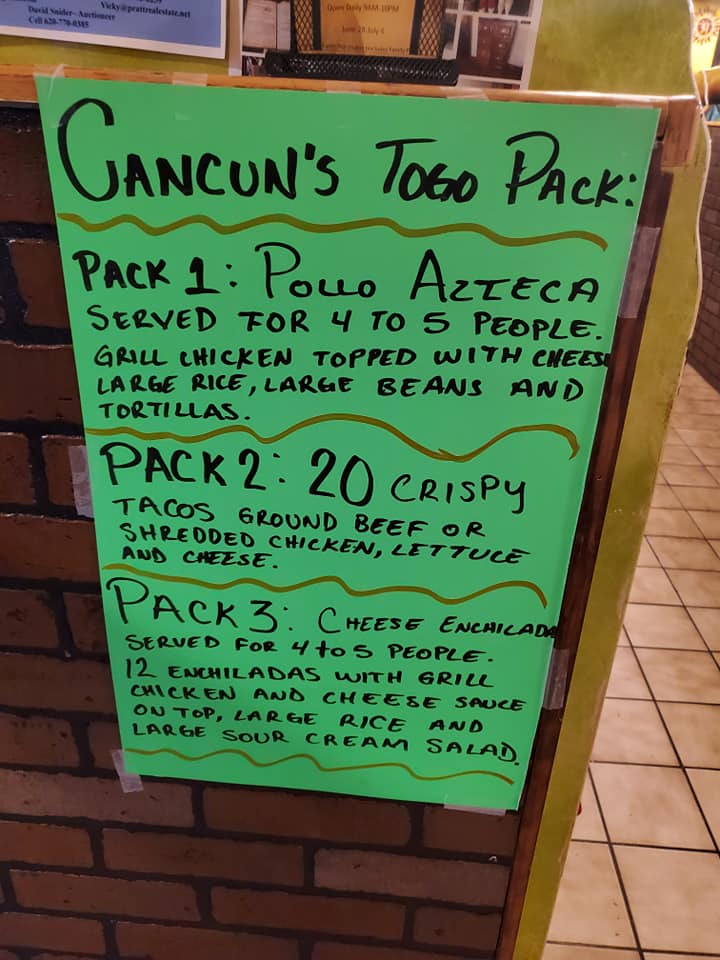 Vicky@prattrealestate.net
David Snider~Auctioneer
Cell 620-770-0385
Open Daily 9AM-10PM
June 28-July 4
CANCUN'S TOGO PACK:
PACK 1: POLLO AZTECA
SERVED FOR 4 TO 5 PEOPLE.
GRILL CHICKEN TOPPED WITH CHEESE
LARGE RICE, LARGE BEANS AND
TORTILLAS.
PACK 2: 20 CRISPY
TACOS GROUND BEEF OR
SHREDDED CHICKEN, LETTUCE
AND CHEESE.
PACK 3: CHEESE ENCHILADA
SERVED FOR 4 to 5 PEOPLE.
12 ENCHILADAS WITH GRILL
CHICKEN AND CHEESE SAUCE
ON TOP, LARGE RICE AND
LARGE SOUR CREAM SALAD.